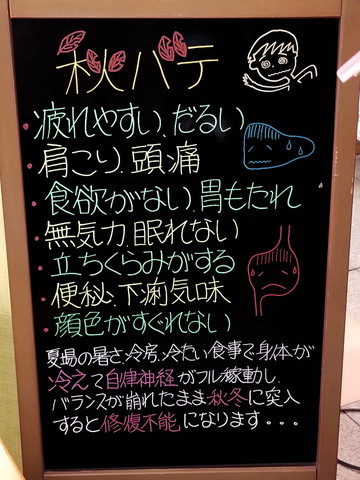 秋バテ
・疲れやすい、だるい
・肩こり、頭痛
・食欲がない、胃もたれ
・無気力、眠れない
・立ちくらみがする
・便秘、下痢気味
・顔色がすぐれない
夏場の暑さ、冷房、冷たい食事で身体が
冷えて自律神経がフル稼動し、
バランスが崩れたまま秋冬に突入
すると修復不能になります・・・